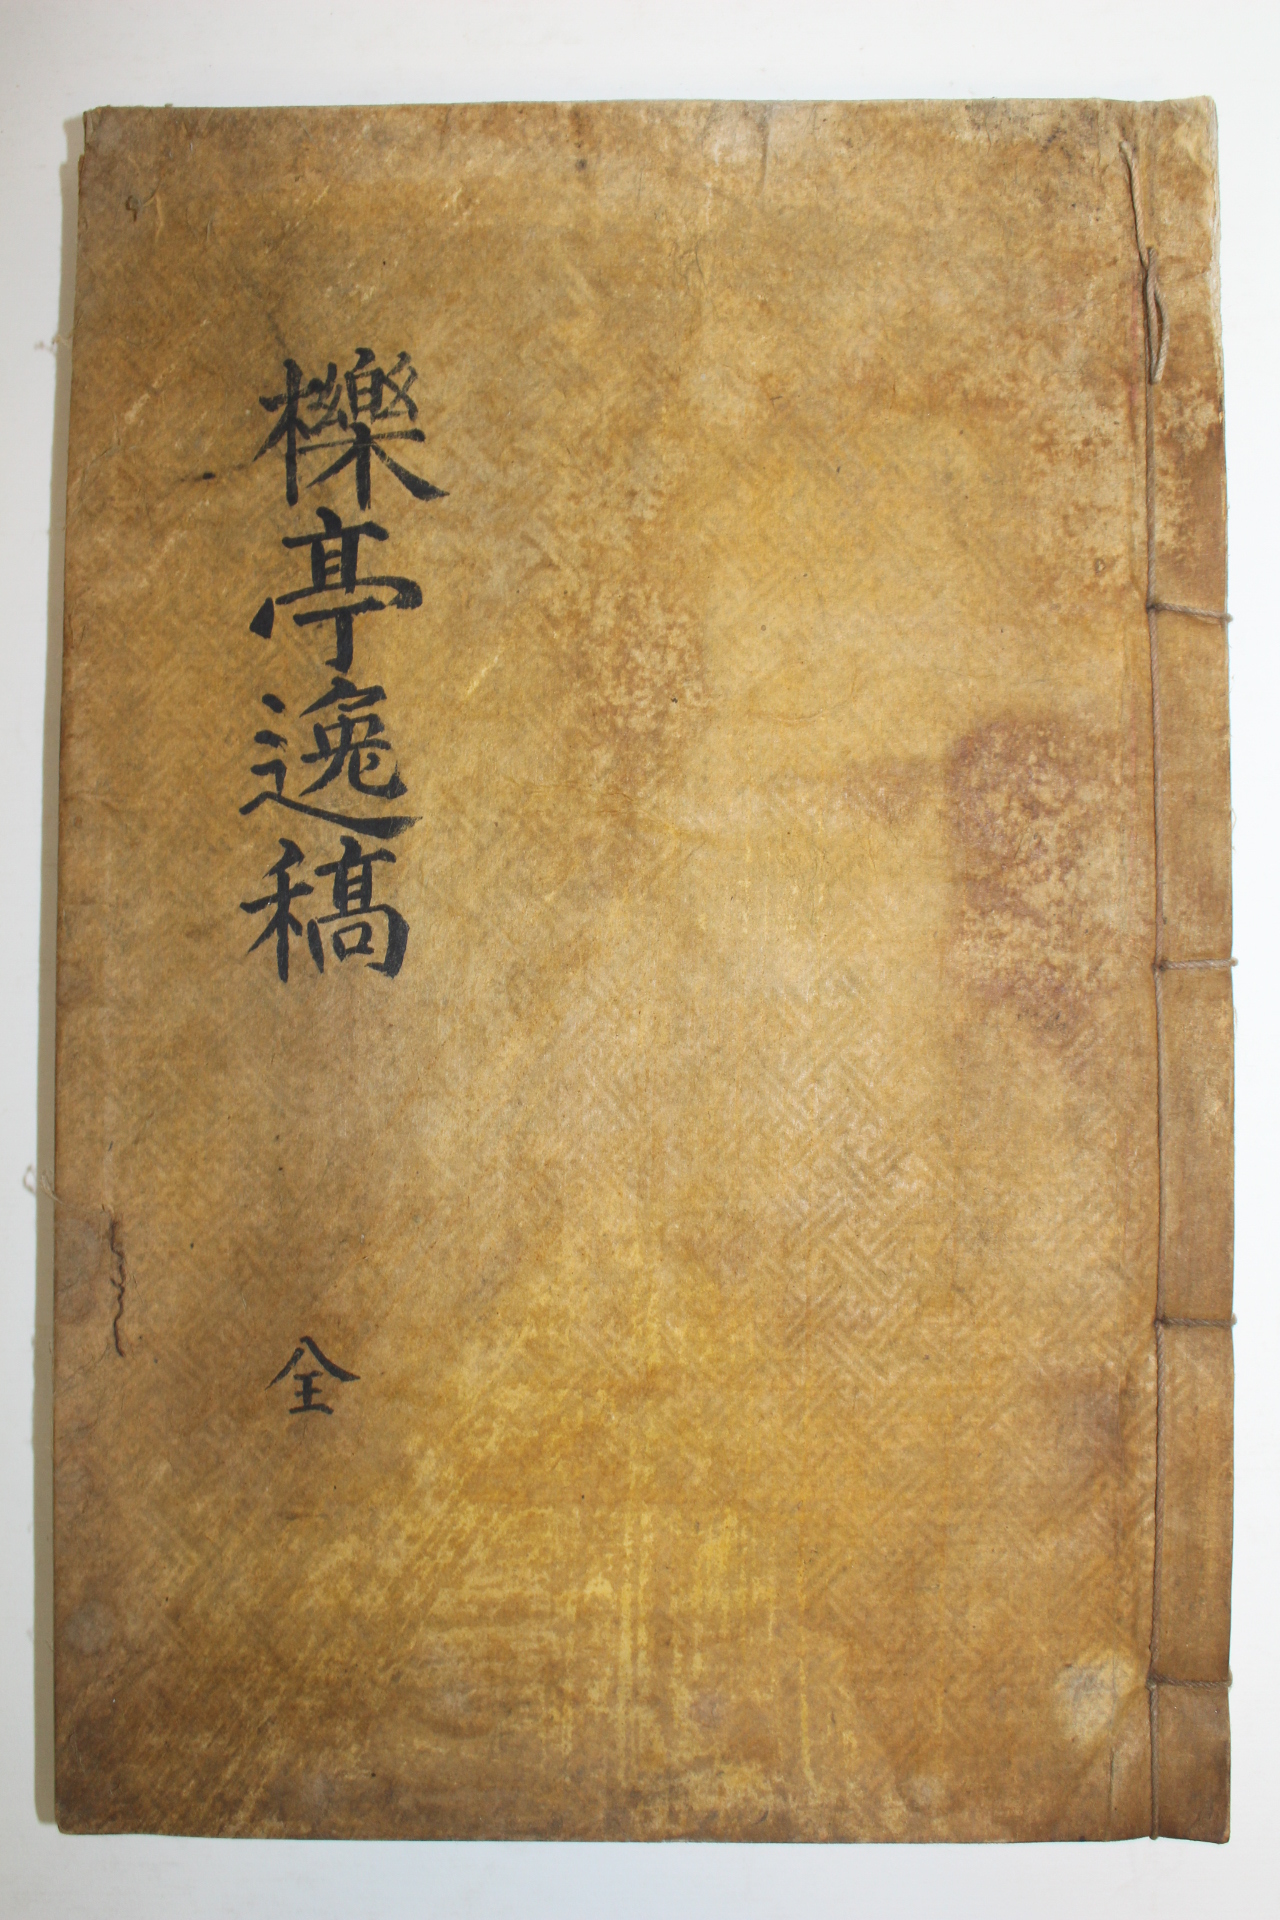 櫟亭逸稿
全